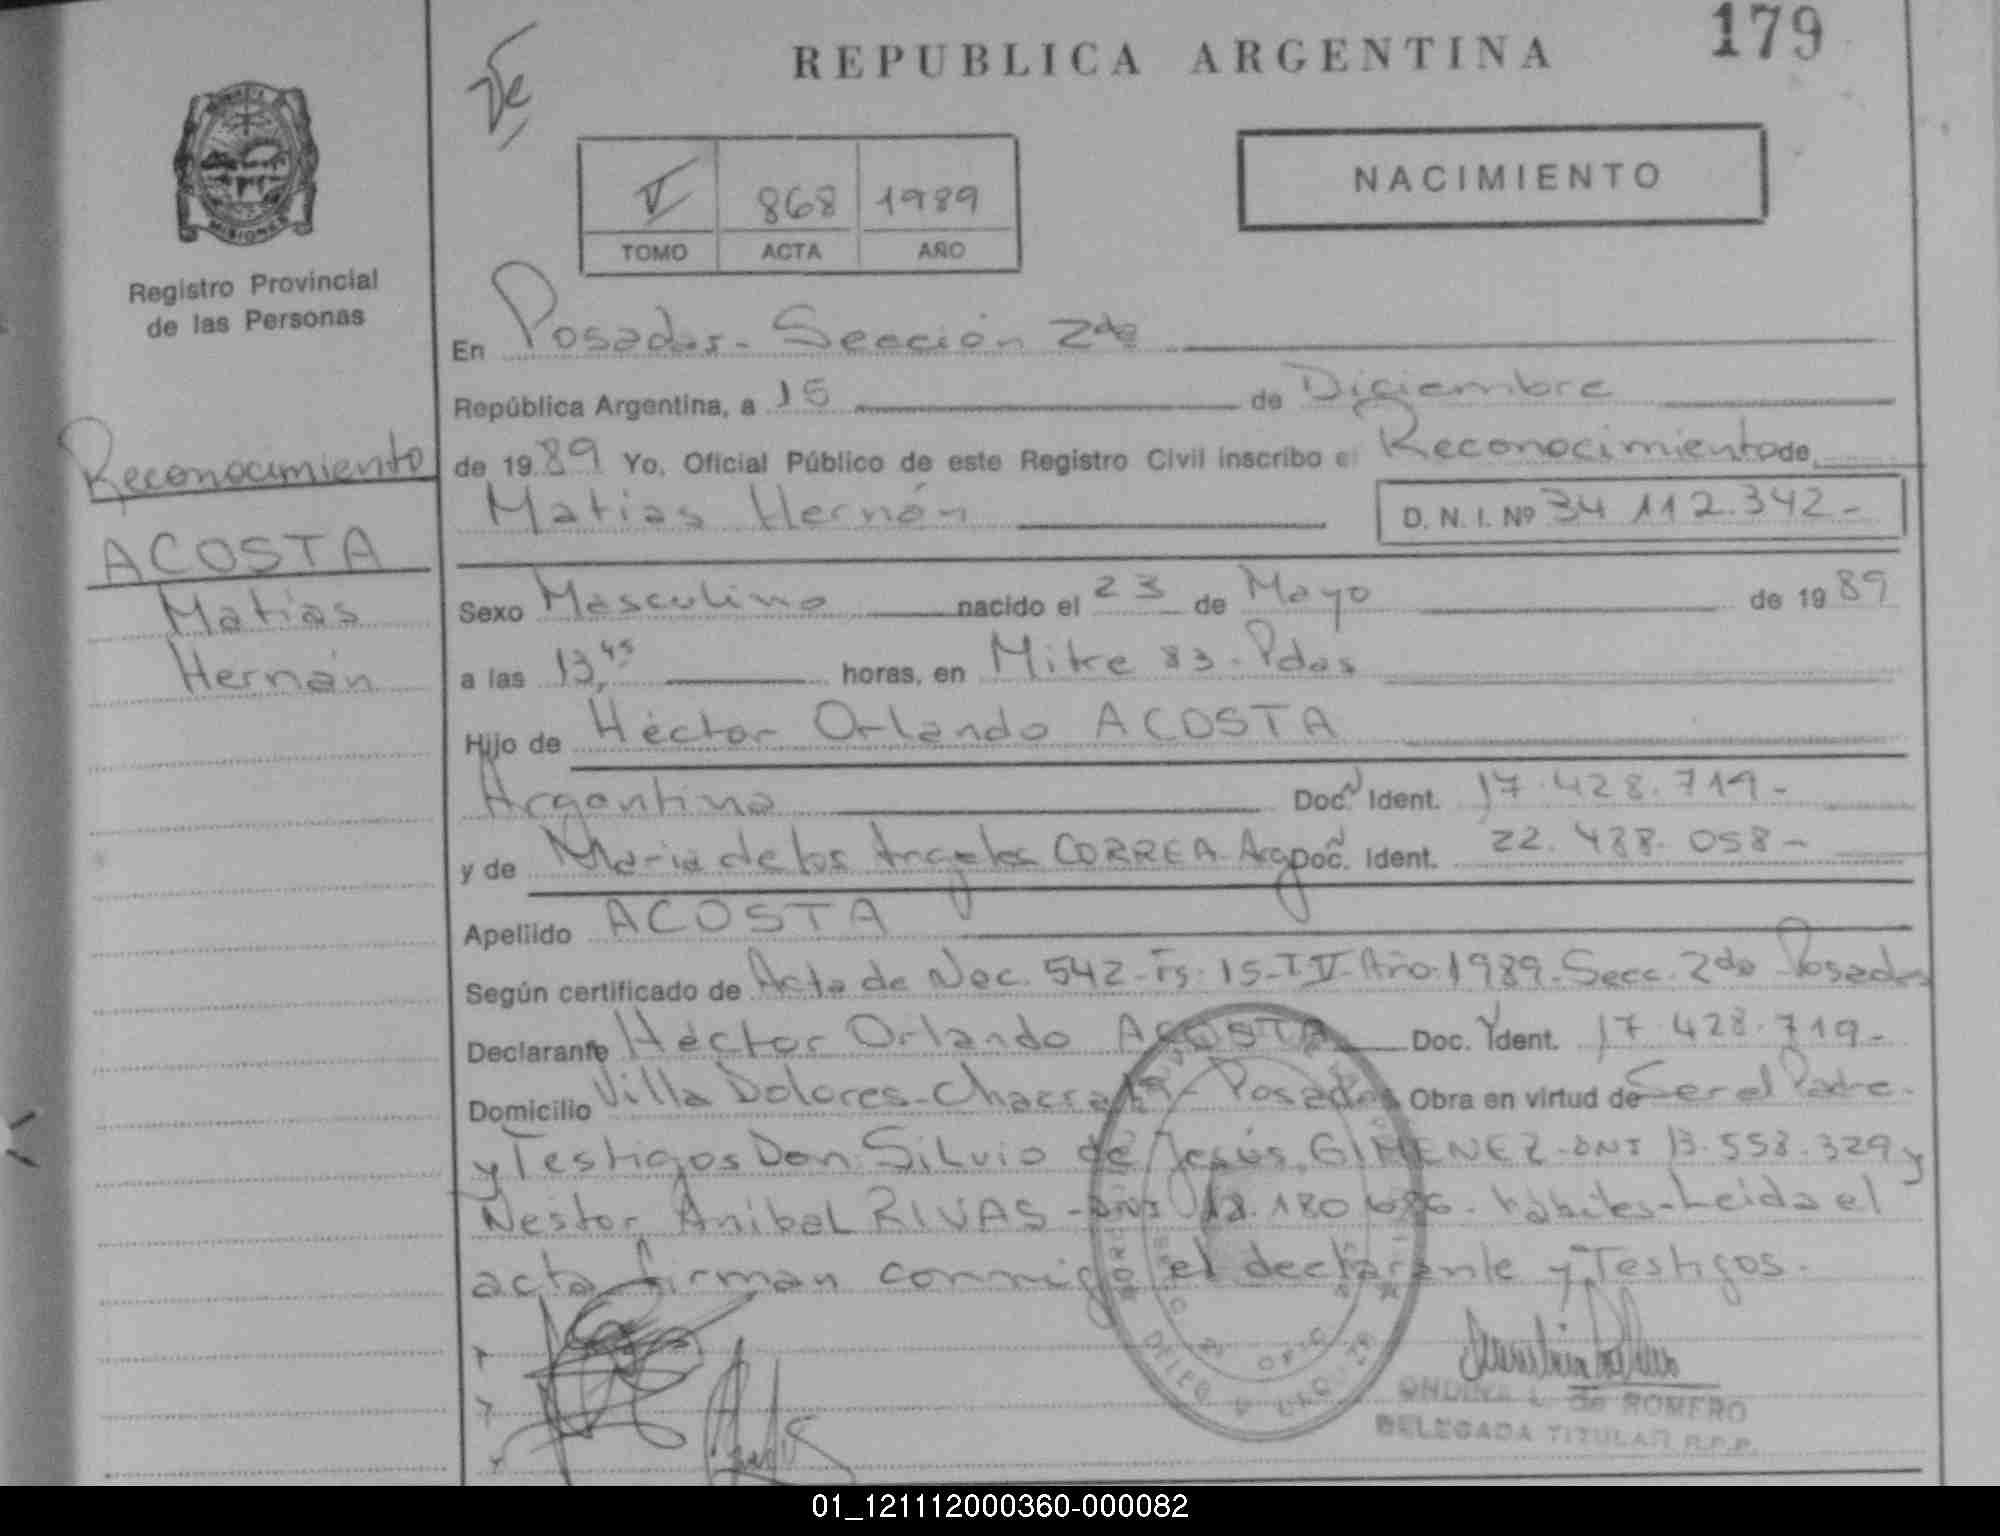 179
REPUBLICA ARGENTINA
NACIMIENTO
V 868 1989
TOMO ACTA AÑO
MISIONES
Registro Provincial
de las Personas
Reconocimiento
ACOSTA
Matías
Hernán
En Posadas - Sección 2da
República Argentina, a 15 de Diciembre
de 1989 Yo, Oficial Público de este Registro Civil inscribo el Reconocimiento de
Matías Hernán D. N. I. Nº 34 112.342-
Sexo Masculino nacido el 23 de Mayo de 1989
a las 13,45 horas, en Mitre 83 - Pdas
Hijo de Héctor Orlando ACOSTA
Argentina Doc. Ident. 17.428.719-
y de María de los Angeles CORREA - Arg Doc. Ident. 22.488.058-
Apellido ACOSTA
Según certificado de Acta de Nac. 542 - Fs: 15 - T IV - Año 1989 - Secc. 2da Posadas
Declarante Héctor Orlando ACOSTA Doc. Ident. 17.428.719-
Domicilio Villa Dolores - Chacra - Posadas Obra en virtud de Ser el Padre -
y Testigos Don Silvio de Jesús GIMENEZ - DNI 13.558.329 y
Nestor Anibal RIVAS - DNI 180 hábiles - Leida el
acta firman conmigo el declarante y Testigos.
ONDINA L. de ROMERO
DELEGADA TITULAR R.P.P.
01_121112000360-000082